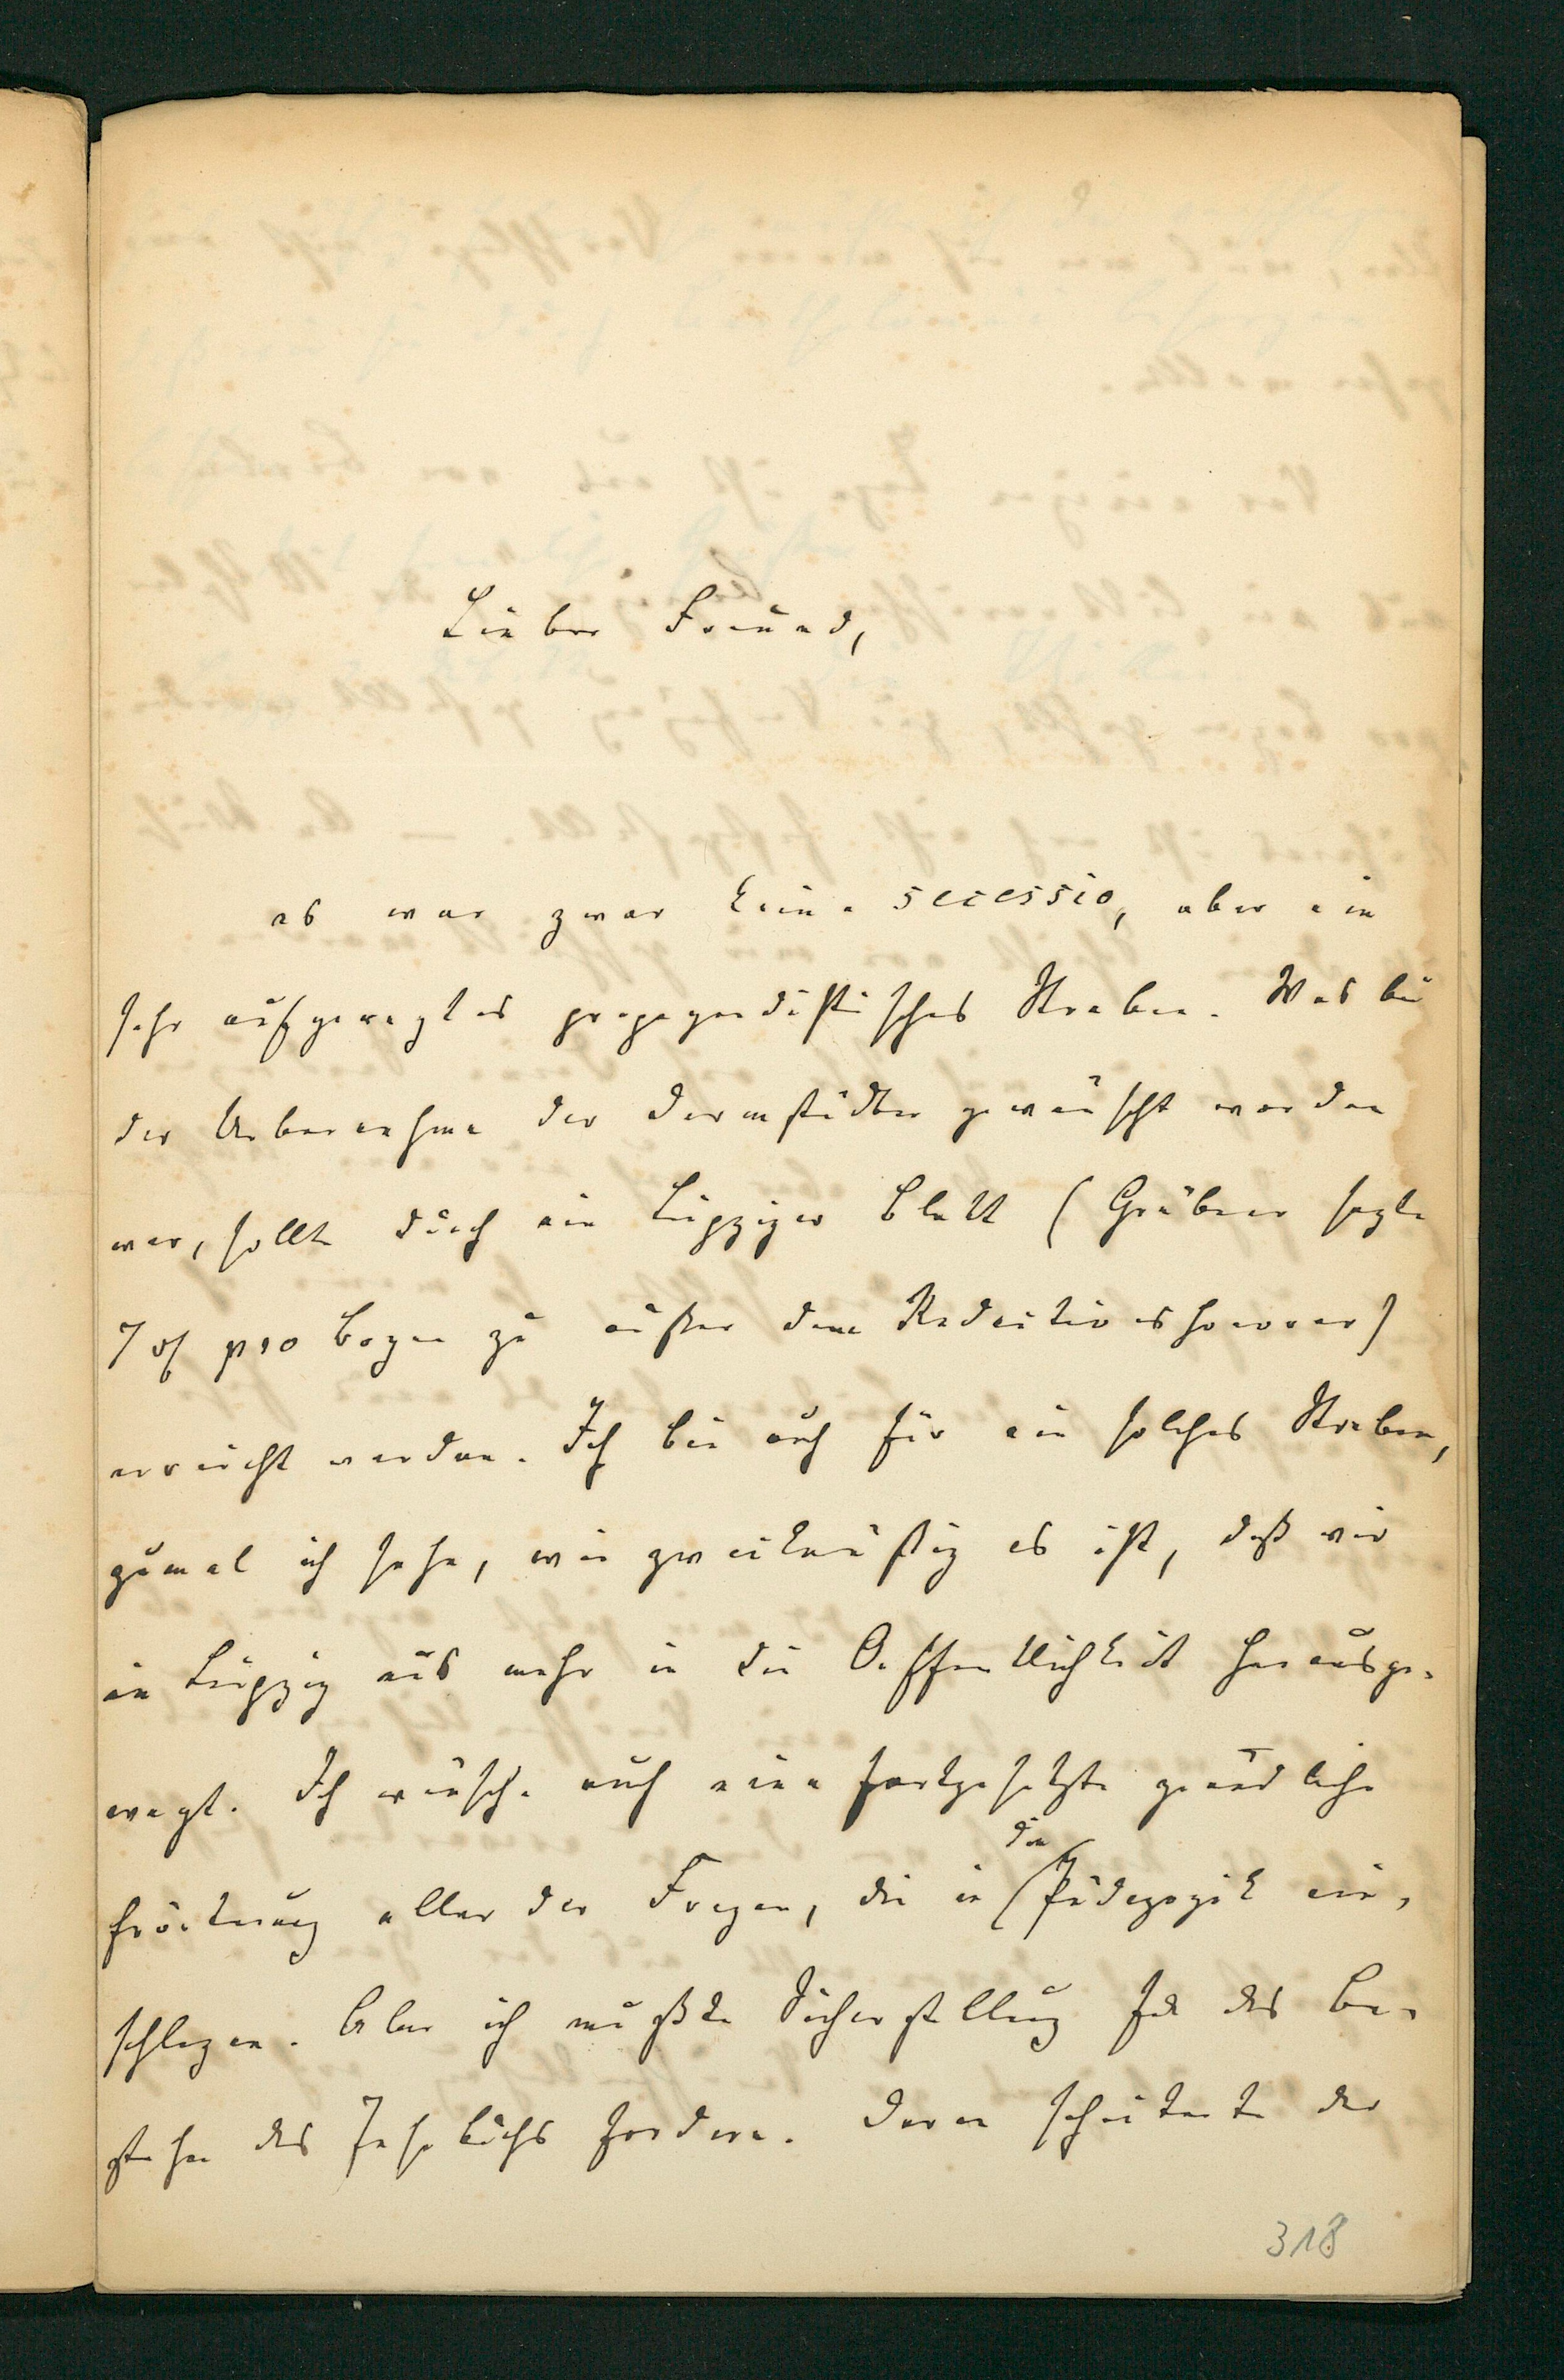 Lieber Freund,
es war zwar keine secessio, aber ein
sehr aufgeregtes propagandistisches Streben. Was bei
der Uebernahme der Darmstädter gewünscht worden
war, sollte durch ein Leipziger Blatt (Gräbner sagte
7 rh pro Bogen zu außer dem Redactionshonorar)
erreicht werden. Ich bin auch für ein solches Streben,
zumal ich sehe, wie zweckmäßig es ist, daß wir
in Leipzig uns mehr in die Oeffentlichkeit herausge-
wagt. Ich wünsche auch eine fortgesetzte gründliche
Erörterung aller der Fragen, die in die Pädagogik ein-
schlagen. Aber ich mußte Sicherstellung für das Be-
stehen des Jahrbuchs fordern. Daran scheiterte der
318